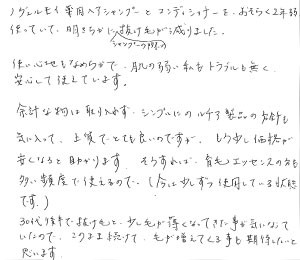 ノヴェルモイ 薬用ヘアシャンプーと コンディショナーを、おそらく2年弱
使っていて、明きらかに抜け毛が減りました。
シャンプーの際の
使い心地もなめらかで、肌の弱い私もトラブルも無く、
安心して使えています。
余計な物は取り入れず、シンプルにのルチア製品の方針も
気に入って、上質でとても良いのですが、もう少し価格が
安くなると助かります。そうすれば、育毛エッセンスの方も
多い頻度で使えるので、(今は少しずつ使用している状態
です。)
30代後半で抜け毛と、少し毛が薄くなってきた事が気になって
いたので、このまま続けて、毛が増えてくる事も期待したいと
思います。